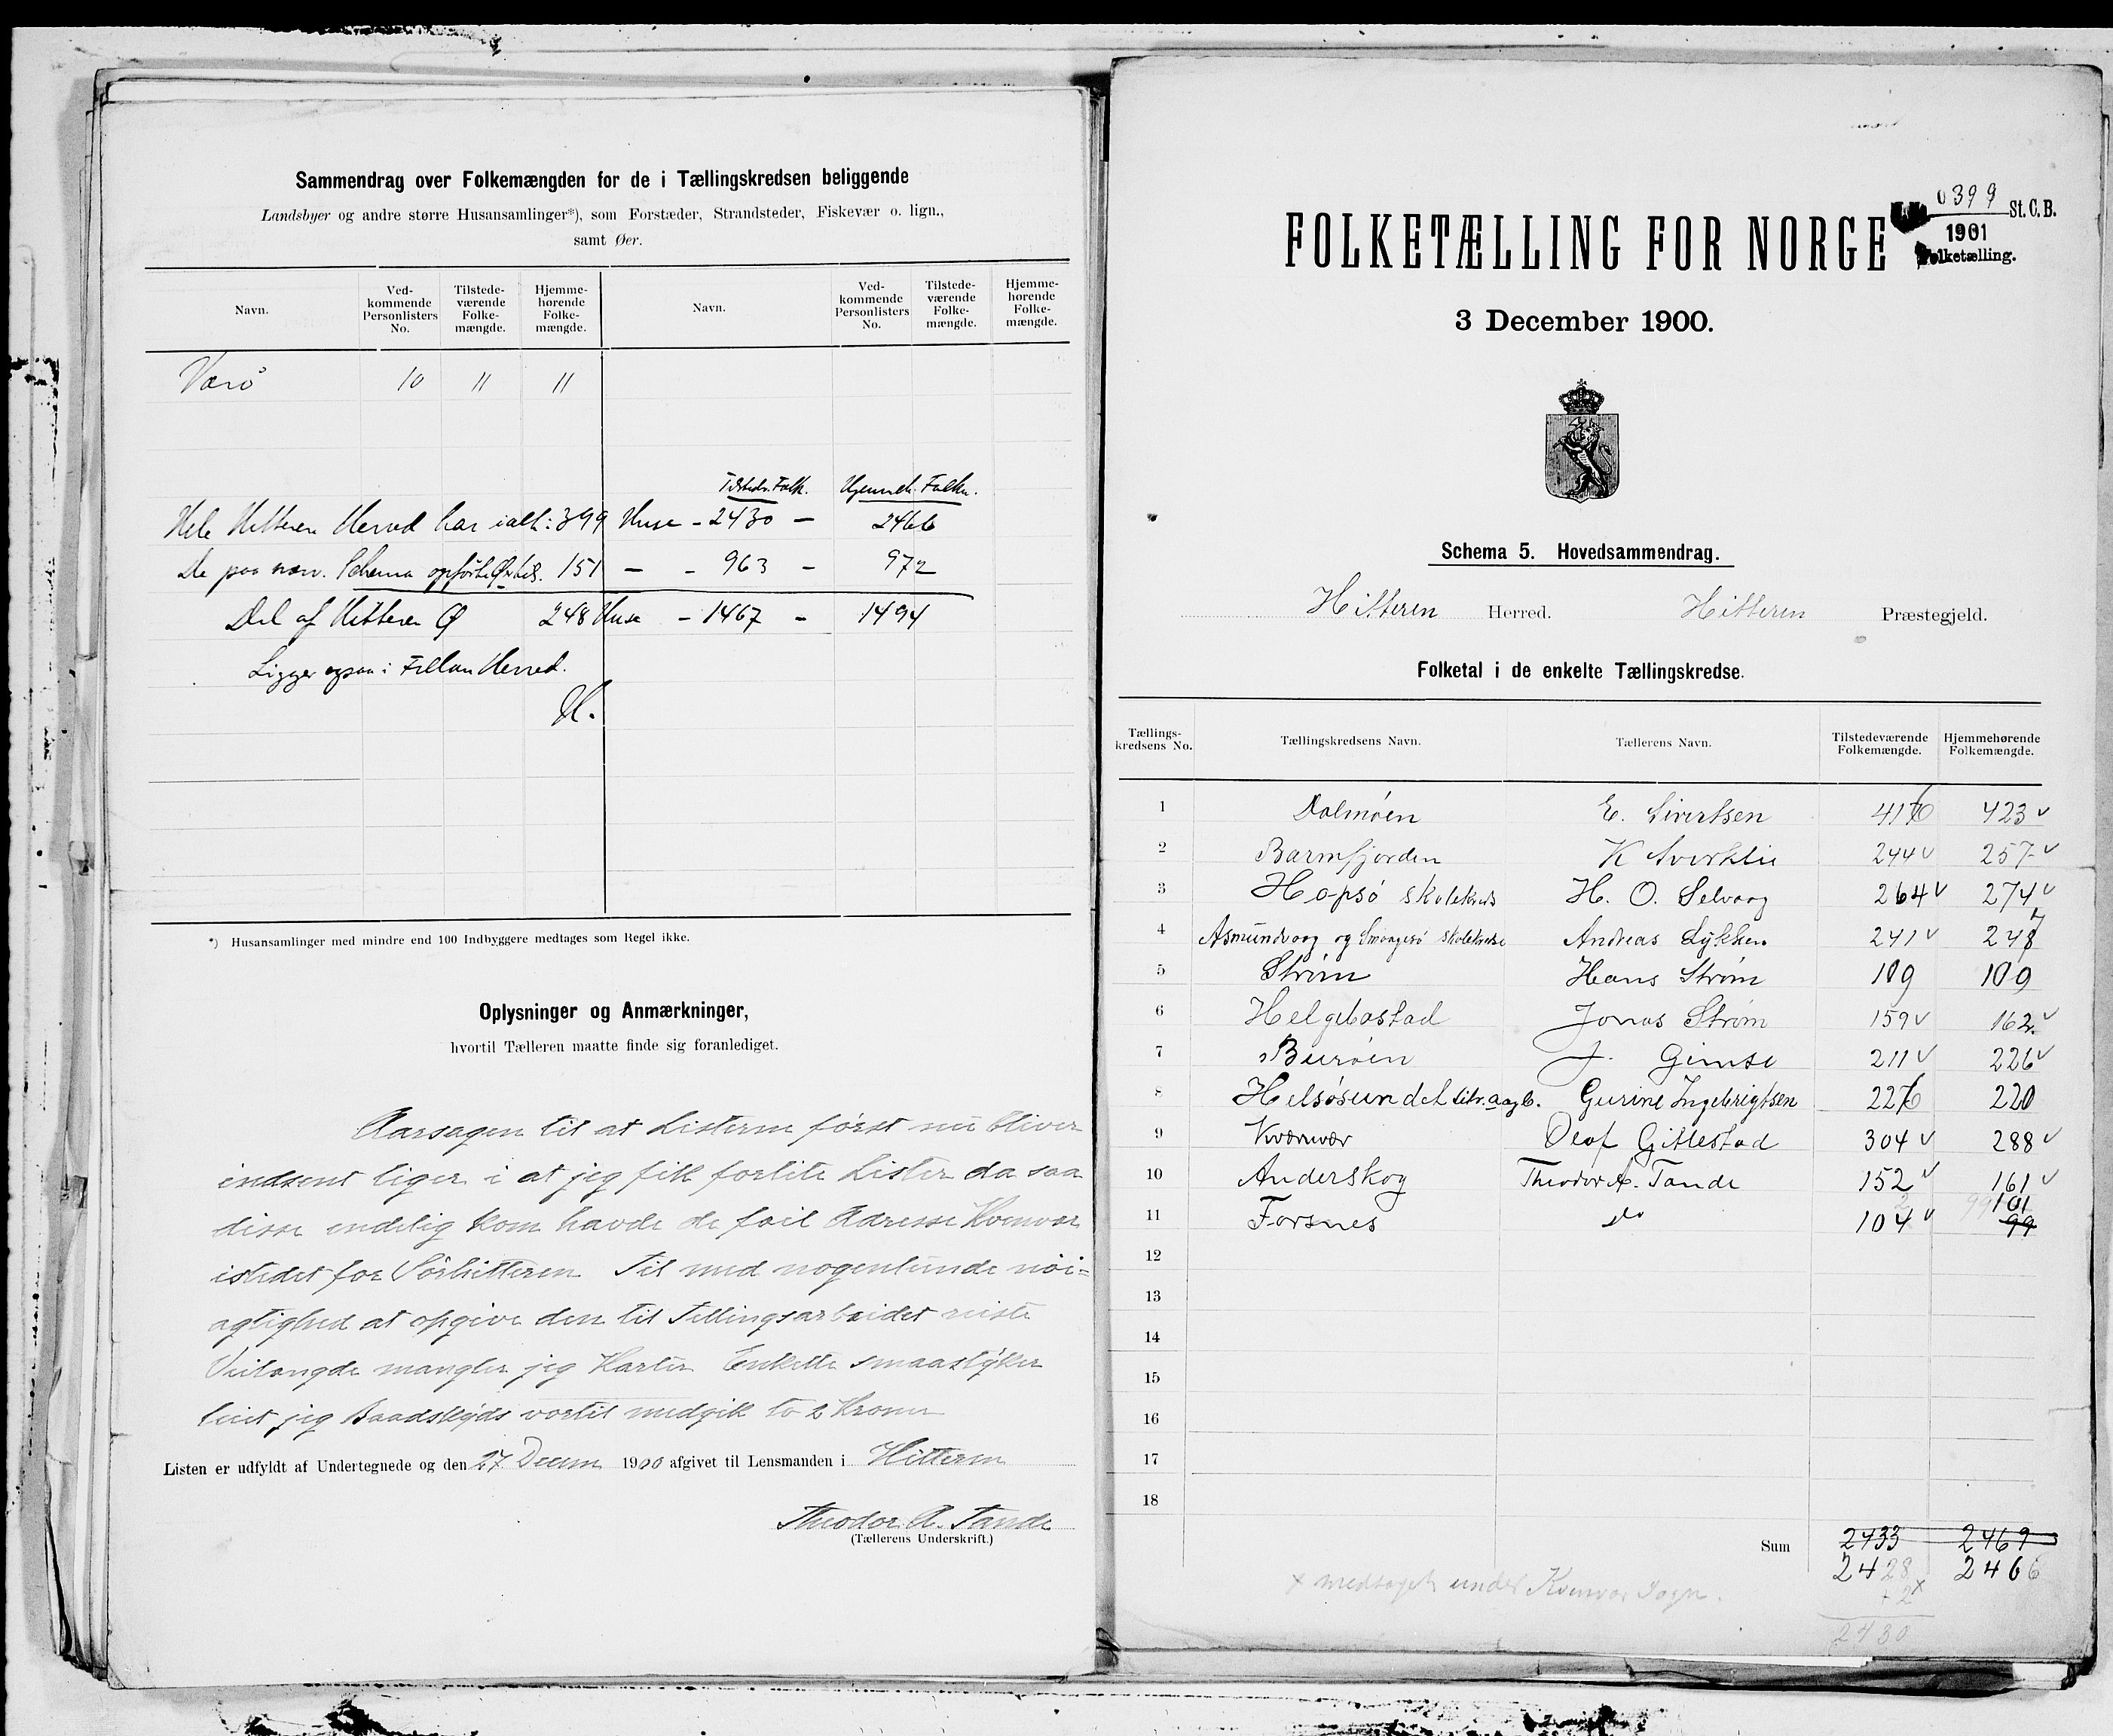 Sammendrag over Folkemængden for de i Tællingskredsen beliggende
Landsbyer og andre større Husansamlinger*), som Forstæder, Strandsteder, Fiskevær o. lign.,
samt Øer.
Navn. Ved-kommende Personlisters No. Tilstede-værende Folke-mængde. Hjemme-hørende Folke-mængde. Navn. Ved-kommende Personlisters No. Tilstede-værende Folke-mængde. Hjemme-hørende Folke-mængde.
Værö 10 11 11
Tilstedv. Folk. Hjemmeh. Folkm.
Hele Hitteren Herred har ialt: 399 Huse - 2430 - 2466
De paa nærv. Schema opförte 151 - - 963 - 972
Del af Hitteren Ø 248 Huse - 1467 - 1494
Ligger ogsaa i Fillan Herred.
H.
*) Husansamlinger med mindre end 100 Indbyggere medtages som Regel ikke.
Oplysninger og Anmærkninger,
hvortil Tælleren maatte finde sig foranlediget.
Aarsagen til at Listerne först nu bliver
indsent liger i at jeg fik forlite Lister da saa
disse endelig kom havde de feil Adresse Kvenvær
istedet for Sörhitteren Til med nogenlunde nöi=
agtighed at opgive den til Tellingsarbeidet reiste
Veilængde mangler jeg Karter Enkelte smaastyker
leiet jeg Baadskyds vortil medgik to 2 Kroner
Listen er udfyldt af Undertegnede og den 27 Decem 1900 afgivet til Lensmanden i Hitteren
Theodor A. Tande
(Tællerens Underskrift.)
0399 St. C. B.
1901
Folketælling.
FOLKETÆLLING FOR NORGE
3 December 1900.
Schema 5. Hovedsammendrag.
Hitteren Herred. Hitteren Præstegjeld.
Folketal i de enkelte Tællingskredse.
Tællings-kredsens No. Tællingskredsens Navn. Tællerens Navn. Tilstedeværende Folkemængde. Hjemmehørende Folkemængde.
1 Dolmöen E. Sivertsen 416 423 v
2 Barmfjorden K 244 v 257 v
3 Hopsö skolekreds H. O. Selvaag 264 v 274 v
4 Asmundvaag og Smaagesö skolekredse Andreas Lykken 241 v 247
5 Ström Hans Ström 109 109
6 Helgebostad Jonas Ström 159 v 162 v
7 Buröen J. Gimse 211 v 226 v
8 Helsösundet Gurine Ingebrigtsen 226 220
9 Kvænvær Olaf Gittestad 304 v 288 v
10 Anderskog Theodor A. Tande 152 v 161 v
11 Forsnes do 104 v 99 101
12
13
14
15
16
17
18
Sum 2433 2469
2428 2466
+ 2 x
2430
x medtaget under Kvenvær Sogn.